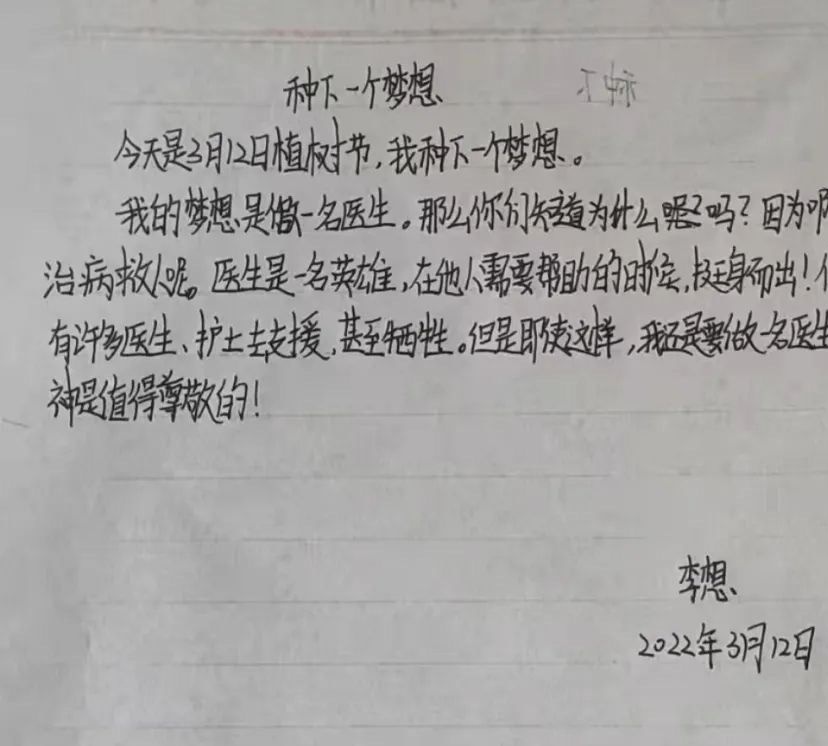 种下一个梦想
种下
今天是3月12日植树节,我种下一个梦想。
我的梦想是做一名医生。那么你们知道为什么呢?吗?因为
治病救人呢。医生是一名英雄,在他人需要帮助的时候,挺身而出!
有许多医生、护士去支援,甚至牺牲。但是即使这样,我还是要做一名医生
神是值得尊敬的!
李想
2022年3月12日